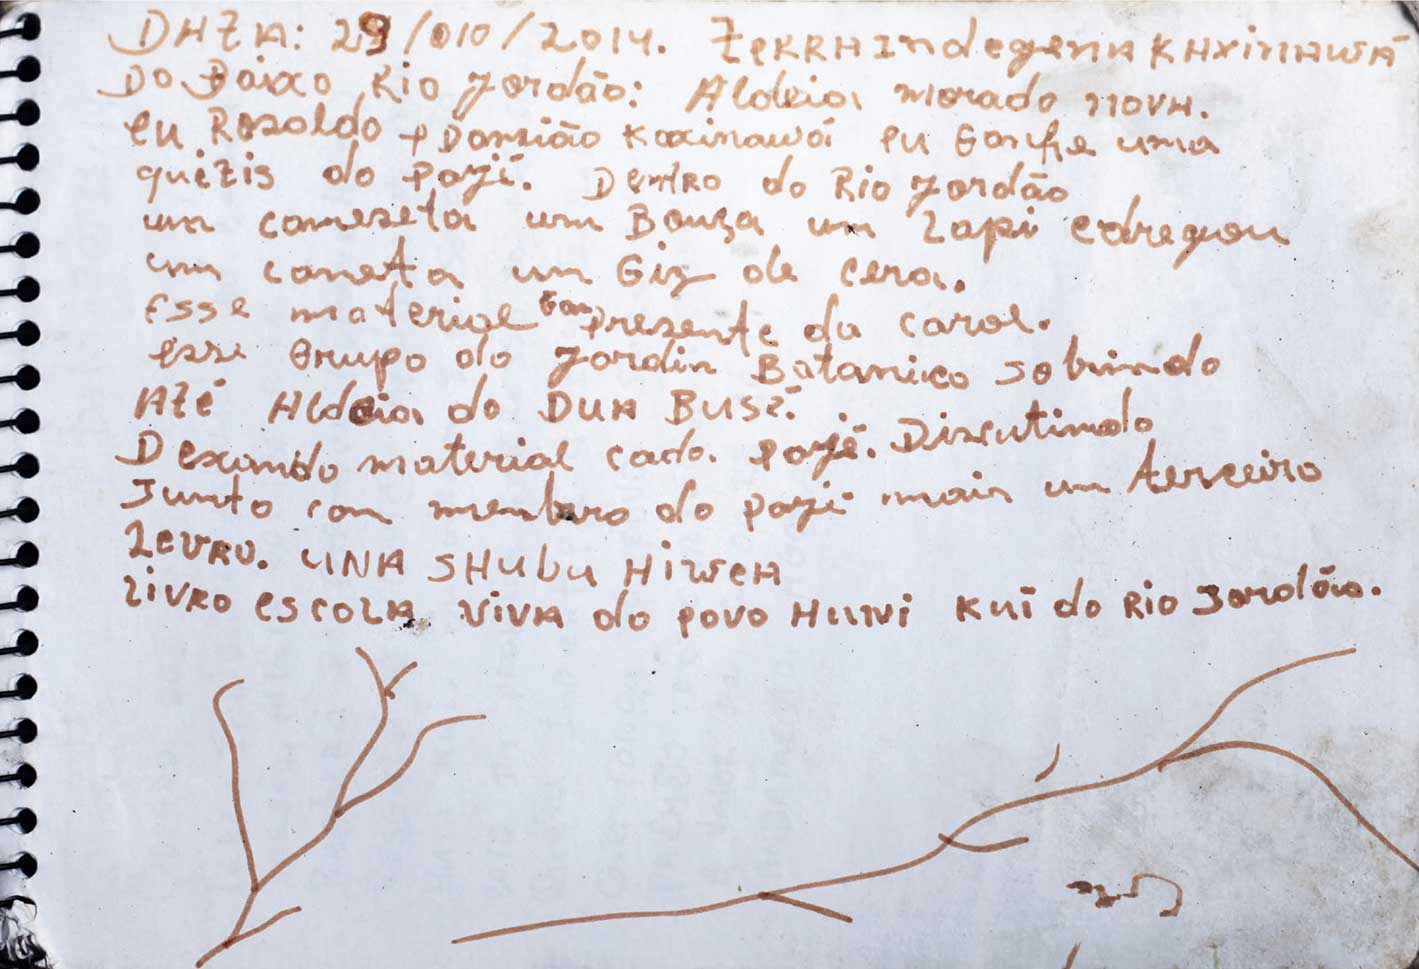 DATA: 29/010/2014. TERRA Indegena KAXINAWÁ
DO Baixo Rio Jordão: Aldeia morada NOVA.
eu Rosaldo Damião Kaxinawá eu Ganhe uma
quétis do pajé. DENTRO do Rio Jordão
um camezeta um Bouza um Lapi
um caneta un Giz de cera.
Esse material presente da carol.
esse Grupo do Jordin Botanico sobindo
Até Aldeia do DUA BUSẼ.
Dexando material cada pajé. Discutindo
Junto com membro do pajé mais um terceiro
LEVRO. UNA SHUBU HIWEA
LIVRO ESCOLA VIVA do povo HUNI KUĨ do Rio Jordão.